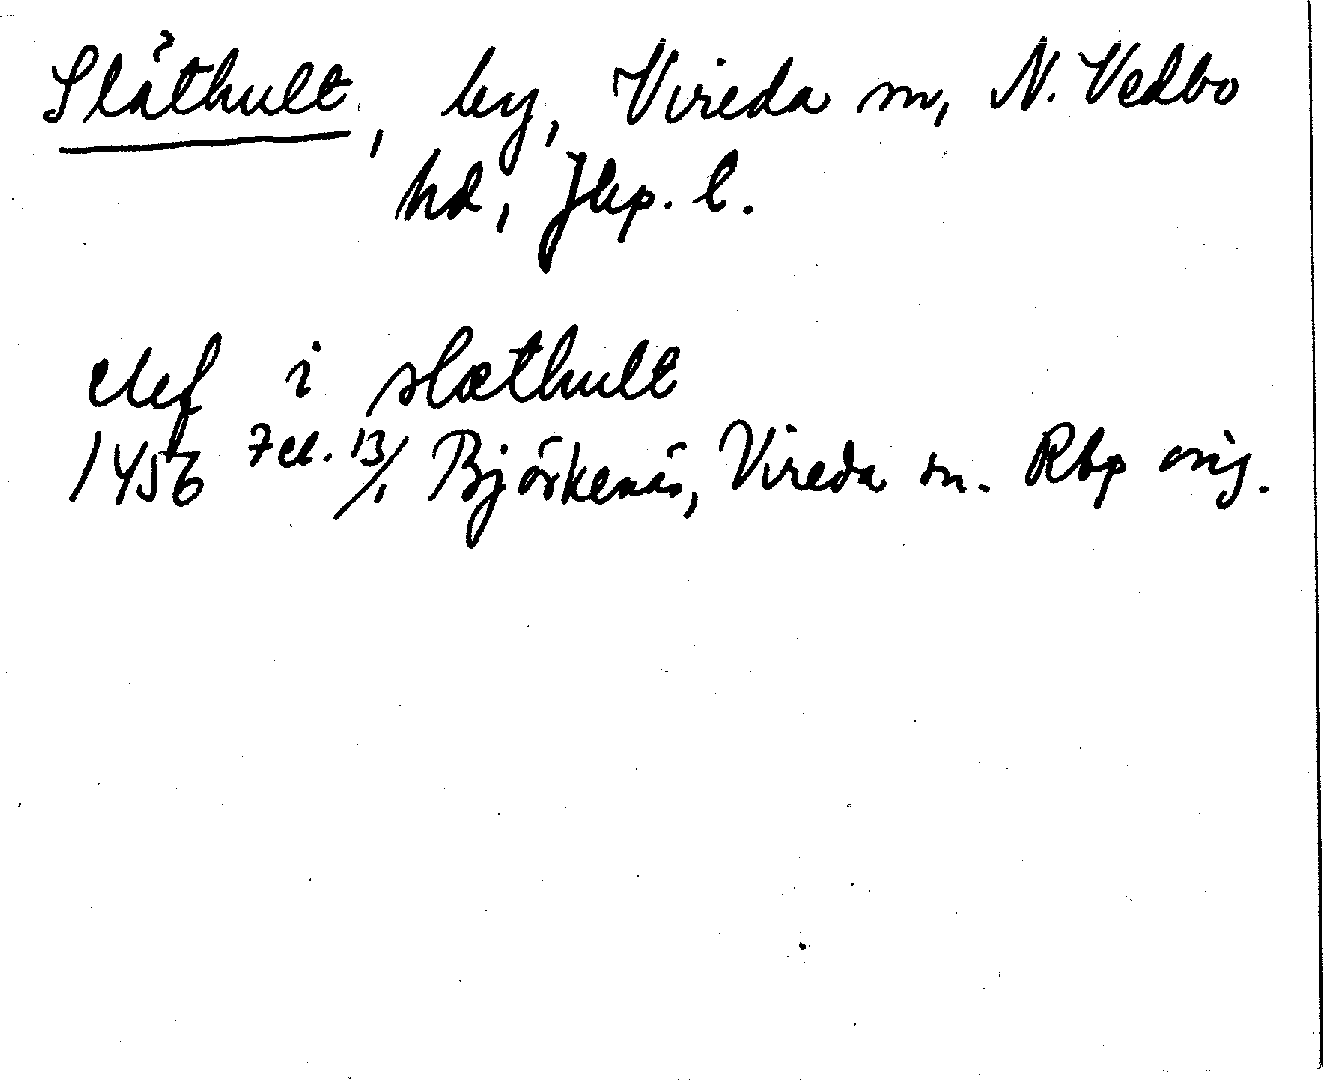 Slåthult, by, Vireda sn, N. Vedbo
hd, Jkp. l.
elef i slæthult
1456 13/1 Björkenäs, Vireda sn. Rbp orig.